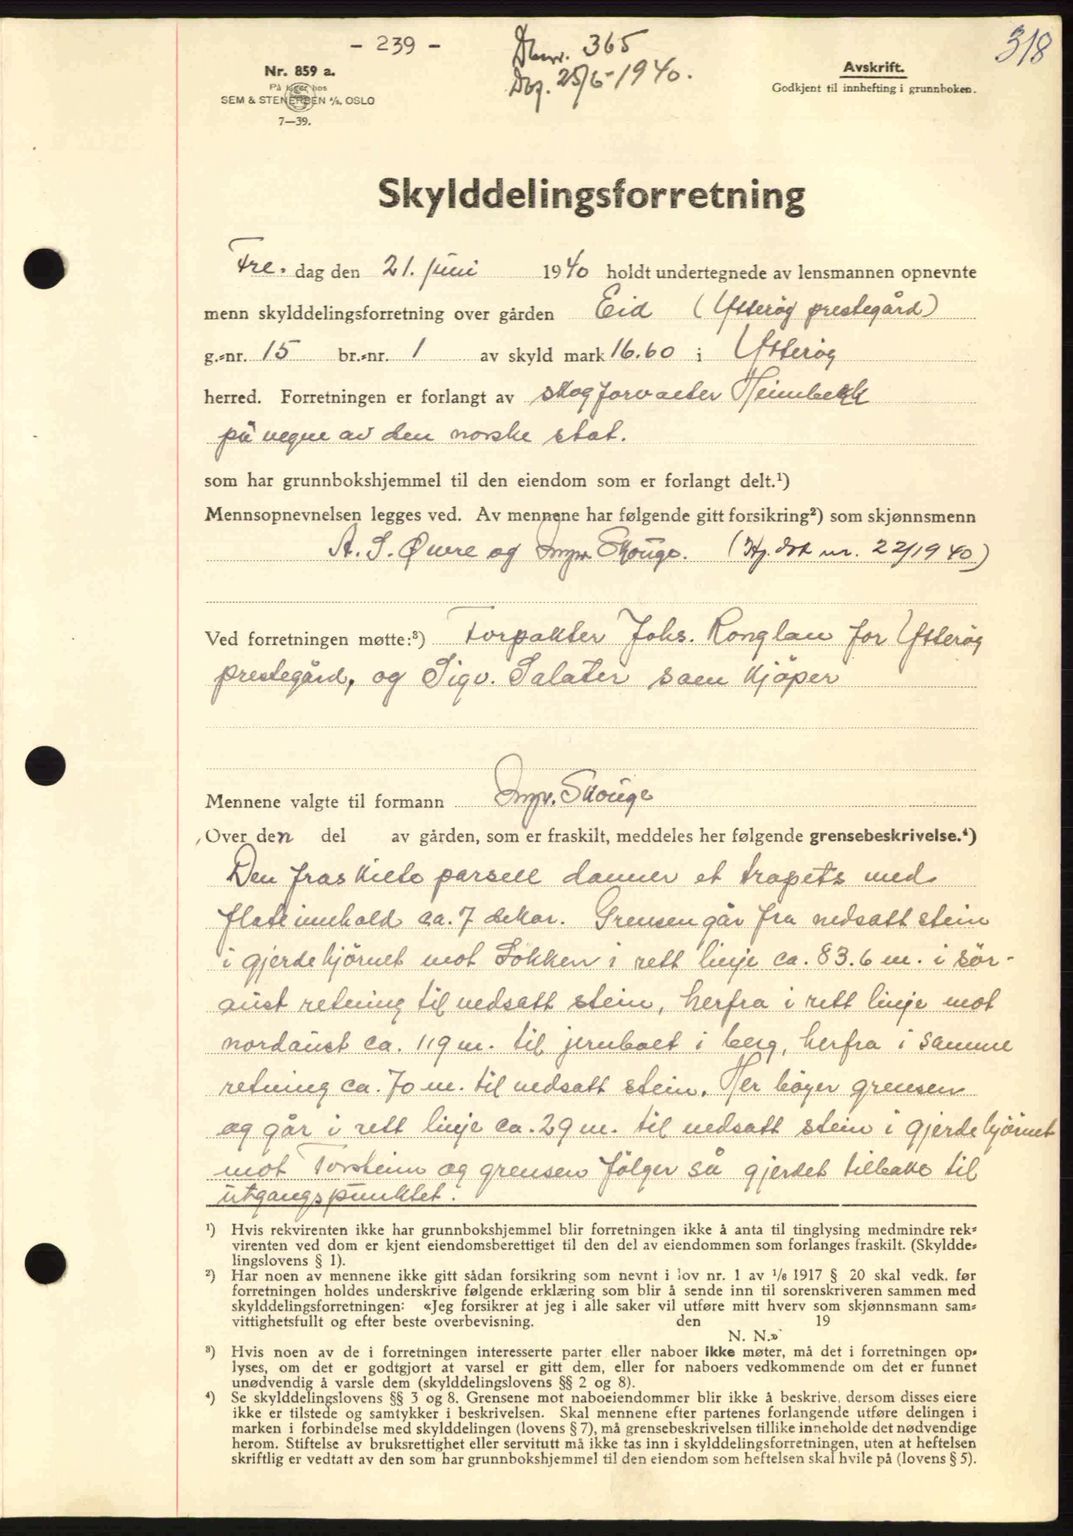 - 239 -
Dbnr. 365
Dbf. 25/6-1940.
318
Nr. 859 a.
På lager hos
SEM & STENERSEN A/S, OSLO
7—39.
Avskrift.
Godkjent til innhefting i grunnboken.
Skylddelingsforretning
Fre. dag den 21. juni 1940 holdt undertegnede av lensmannen opnevnte
menn skylddelingsforretning over gården Eid (Ytterøy prestegård)
g.=nr. 15 br.=nr. 1 av skyld mark 16.60 i Ytterøy
herred. Forretningen er forlangt av skogforvalter Heimbekk
på vegne av den norske stat.
som har grunnbokshjemmel til den eiendom som er forlangt delt.¹)
Mennsopnevnelsen legges ved. Av mennene har følgende gitt forsikring²) som skjønnsmenn
A. S. Øvre og Ingv. Skouge. (Hj. dok nr. 22/1940)
Ved forretningen møtte:³) Forpakter Johs. Ronglan for Ytterøy
prestegård, og Sigv. Salater som kjöper
Mennene valgte til formann Ingv. Skouge
Over den del av gården, som er fraskilt, meddeles her følgende grensebeskrivelse.⁴)
Den fraskilte parsell danner et trapets med
flateinnhold ca. 7 dekar. Grensen går fra nedsatt stein
i gjerdehjörnet mot Lökken i rett linje ca. 83.6 m. i sör-
aust retning til nedsatt stein, herfra i rett linje mot
nordaust ca. 119 m. til jernbolt i berg, herfra i samme
retning ca. 70 m. til nedsatt stein. Her böyer grensen
og går i rett linje ca. 29 m. til nedsatt stein i gjerdehjörnet
mot Torsheim og grensen fölger så gjerdet tilbake til
utgangspunktet.
¹) Hvis rekvirenten ikke har grunnbokshjemmel blir forretningen ikke å anta til tinglysing medmindre rek=
virenten ved dom er kjent eiendomsberettiget til den del av eiendommen som forlanges fraskilt. (Skyldde=
lingslovens § 1).
²) Har noen av mennene ikke gitt sådan forsikring som nevnt i lov nr. 1 av 1/6 1917 § 20 skal vedk. før
forretningen holdes underskrive følgende erklæring som blir å sende inn til sorenskriveren sammen med
skylddelingsforretningen: «Jeg forsikrer at jeg i alle saker vil utføre mitt hverv som skjønnsmann sam=
vittighetsfullt og efter beste overbevisning. den 19
N. N.»
³) Hvis noen av de i forretningen interesserte parter eller naboer ikke møter, må det i forretningen op=
lyses, om det er godtgjort at varsel er gitt dem, eller for naboers vedkommende om det er funnet
unødvendig å varsle dem (skylddelingslovens §§ 2 og 8).
⁴) Se skylddelingslovens §§ 3 og 8. Grensene mot naboeiendommer blir ikke å beskrive, dersom disses eiere
ikke er tilstede og samtykker i beskrivelsen. Skal mennene efter partenes forlangende utføre delingen i
marken i forbindelse med skylddelingen (lovens § 7), må grensebeskrivelsen tillike inneholde det nødvendige
herom. Stiftelse av bruksrettighet eller servitutt må ikke tas inn i skylddelingsforretningen, uten at heftelsen
skriftlig er vedtatt av den som har grunnbokshjemmel til den eiendom som heftelsen skal hvile på (lovens § 5).